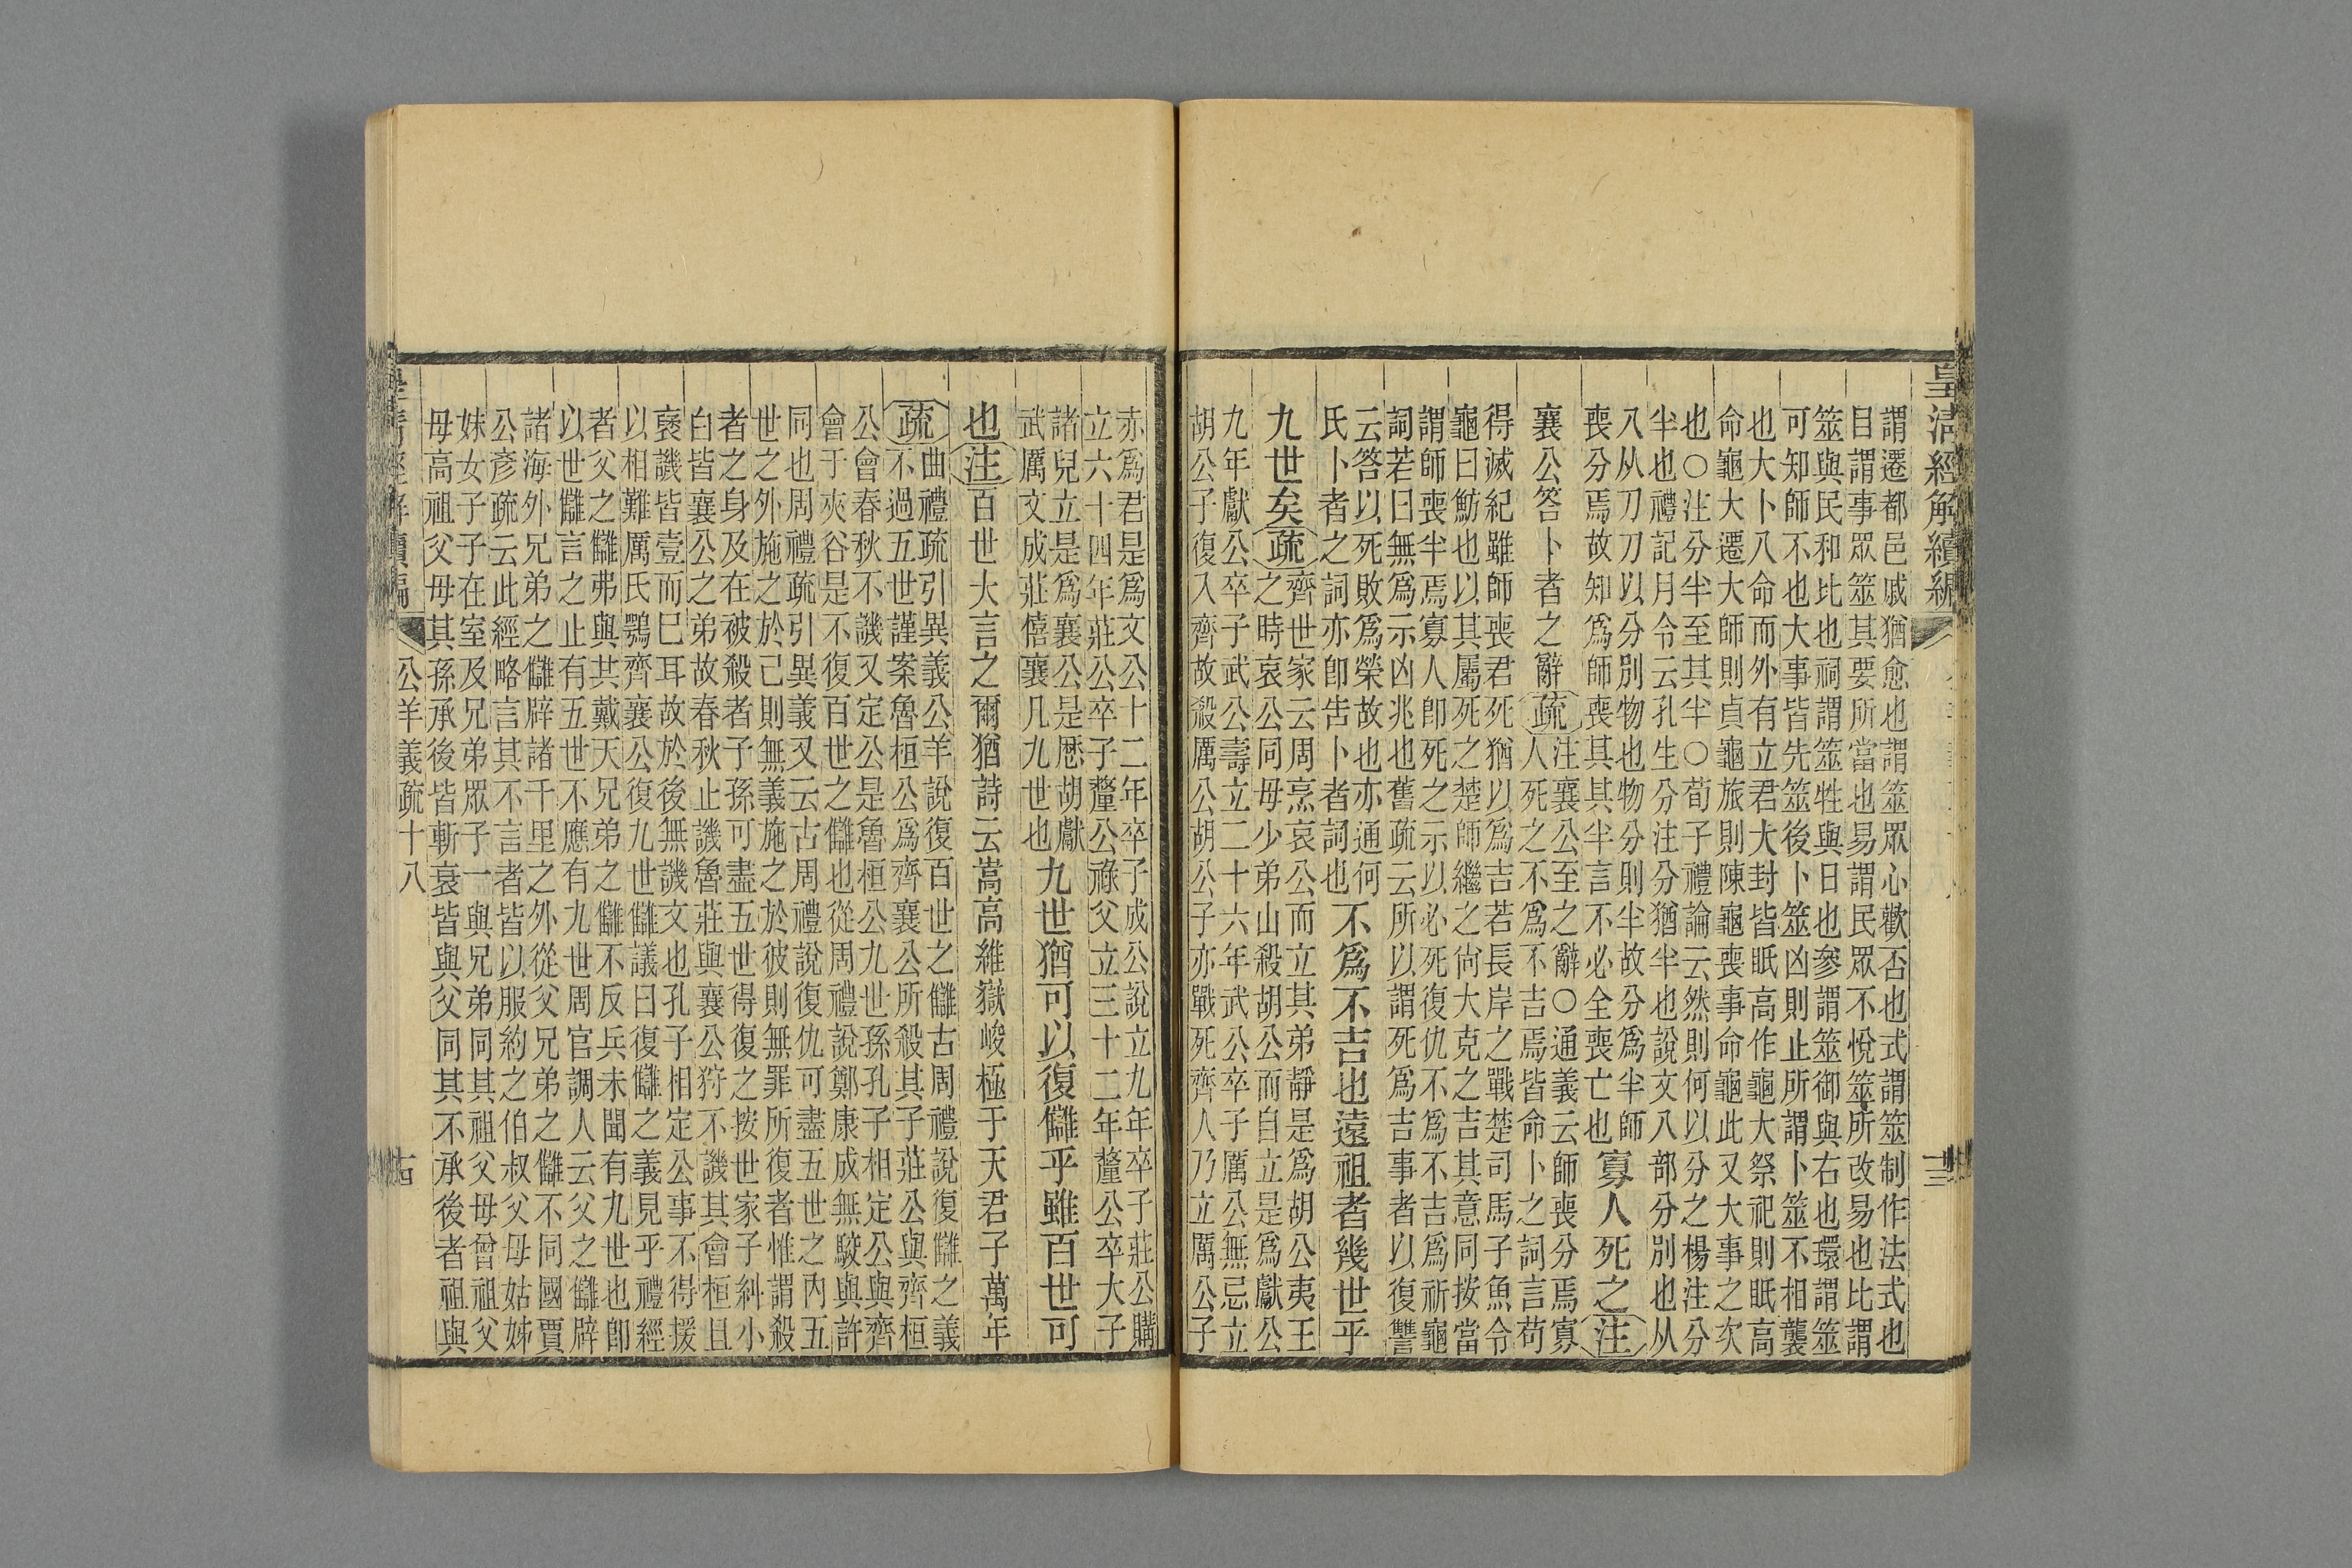 皇清經解續編
十三
謂遷都邑戚猶僉也謂筮眾心歡否也式謂筮制作法式也
目謂事眾筮其要所當也易謂民眾不悅筮所改易也比謂
筮與民和比也祠謂筮牲與日也參謂筮御與右也環謂筮
可知師不也大事皆先筮後卜筮凶則止所謂卜筮不相襲
也大卜八命而外有立君大封皆眂高作龜大祭祀則眂高
命龜大遷大師則貞龜旅則陳龜喪事命龜此又大事之次
也○注分半至其半○荀子禮論云然則何以分之楊注分
半也禮記月令云孔生分注分猶半也說文八部分別也从
八从刀刀以分別物也物分則半故分爲半師
喪分焉故知爲師喪其其半言不必全喪亡也寡人死之注
襄公答卜者之辭疏注襄公至之辭○通義云師喪分焉寡
人死之不爲不吉焉皆命卜之詞言苟
得滅紀雖師喪君死猶以爲吉若長岸之戰楚司馬子魚令
龜曰魴也以其屬死之楚師繼之尙大克之吉其意同按當
謂師喪半焉寡人卽死之示以必死復仇不爲不吉爲祈龜
詞若曰無爲示凶兆也舊疏云所以謂死爲吉事者以復讐
云答以死敗爲榮故也亦通何
氏卜者之詞亦卽告卜者詞也不爲不吉也遠祖者幾世乎
九世矣疏齊世家云周烹哀公而立其弟靜是爲胡公夷王
之時哀公同母少弟山殺胡公而自立是爲獻公
九年獻公卒子武公壽立二十六年武公卒子厲公無忌立
胡公子復入齊故殺厲公胡公子亦戰死齊人乃立厲公子
赤爲君是爲文公十二年卒子成公說立九年卒子莊公購
立六十四年莊公卒子釐公祿父立三十二年釐公卒大子
諸兒立是爲襄公是厯胡獻
武厲文成莊僖襄几九世也九世猶可以復讎乎雖百世可
也注百世大言之爾猶詩云嵩高維嶽峻極于天君子萬年
疏曲禮疏引異義公羊說復百世之讎古周禮說復讎之義
不過五世謹案魯桓公爲齊襄公所殺其子莊公與齊桓
公會春秋不譏又定公是魯桓公九世孫孔子相定公與齊
會于夾谷是不復百世之讎也從周禮說鄭康成無駁與許
同也周禮疏引異義又云古周禮說復仇可盡五世之內五
世之外施之於己則無義施之於彼則無罪所復者惟謂殺
者之身及在被殺者子孫可盡五世得復之按世家子糾小
白皆襄公之弟故春秋止譏魯莊與襄公狩不譏其會桓且
襃譏皆壹而巳耳故於後無譏文也孔子相定公事不得援
以相難厲氏鶚齊襄公復九世讎議曰復讎之義見乎禮經
者父之讎弗與共戴天兄弟之讎不反兵未聞有九世也卽
以世讎言之止有五世不應有九世周官調人云父之讎辟
諸海外兄弟之讎辟諸千里之外從父兄弟之讎不同國賈
公彥疏云此經略言其不言者皆以服約之伯叔父母姑姊
妹女子子在室及兄弟眾子一與兄弟同其祖父母曾祖父
母高祖父母其孫承後皆斬衰皆與父同其不承後者祖與
公羊義疏十八
十四